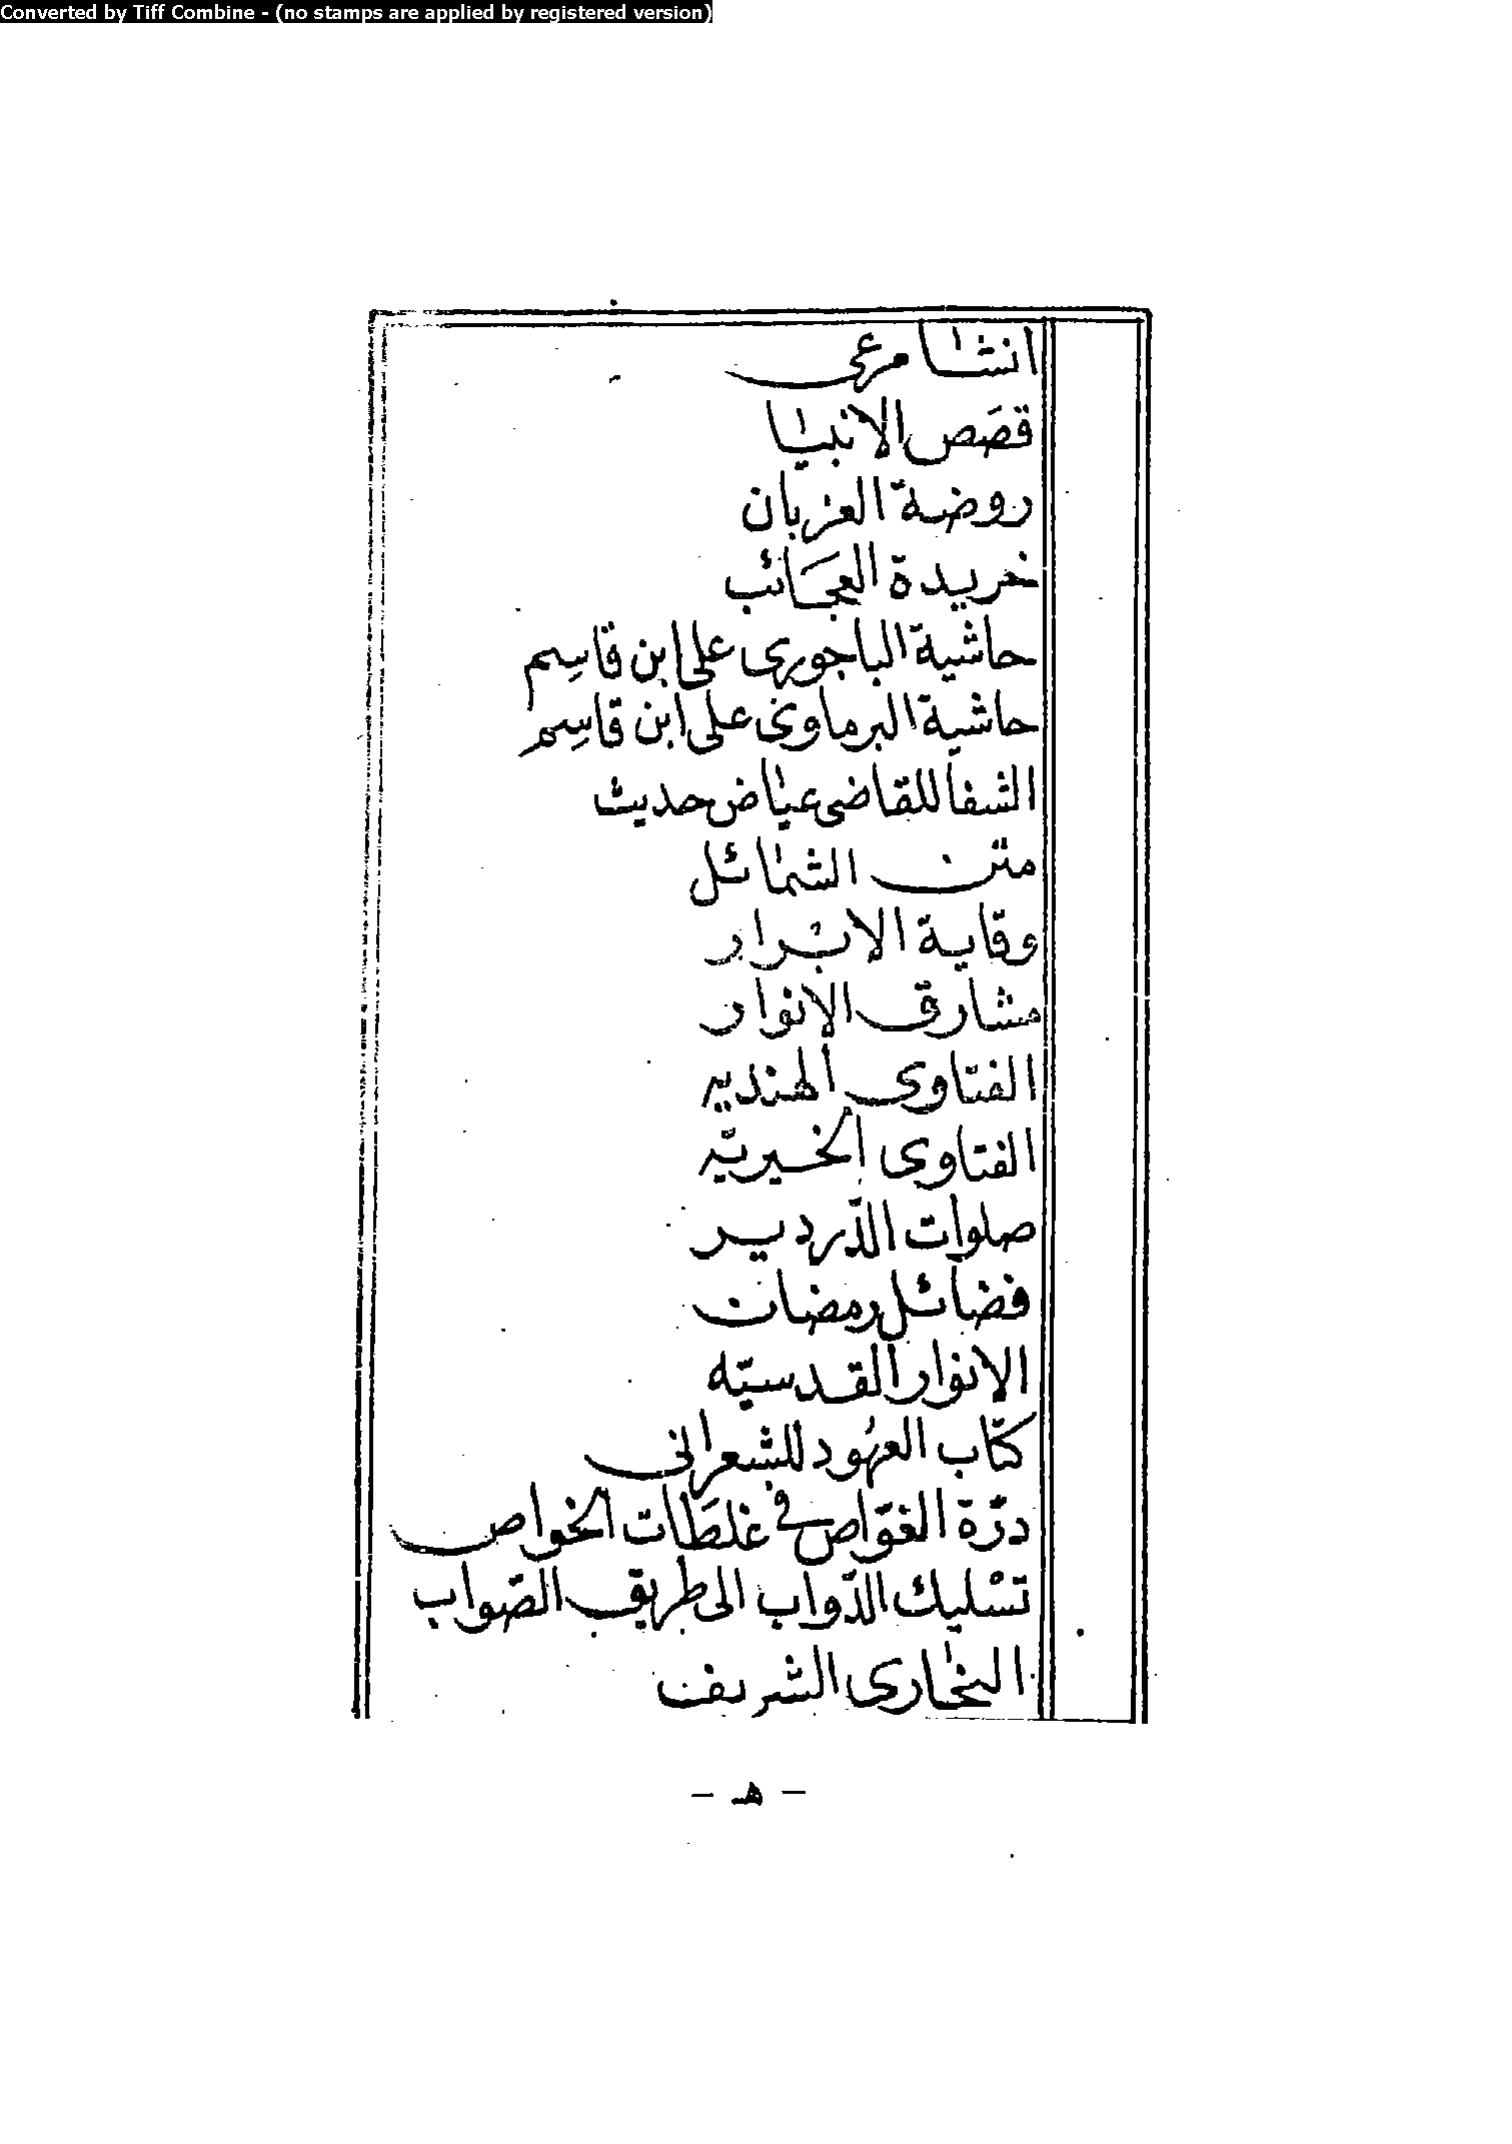 Converted by Tiff Combine - (no stamps are applied by registered version)
انشا مرعى
قصَص الانبيا
روضة العزبان
خريدة العجَائب
حاشية الباجورى على ابن قاسِم
حاشية البرماوى على ابن قاسِم
الشفا للقاضى عياض حديث
متن الشمائل
وقاية الابرار
مشارق الانوار
الفتاوى الهنديه
الفتاوى الخيريّه
صلوات الدّردير
فضائل رمضان
الانوار القدسيّه
كتاب العهُود للشعرانى
درّة الغوّاص فى غلطَات الخواص
تسْليك الدّواب الى طريق الصّواب
البخارى الشريف
- هـ -